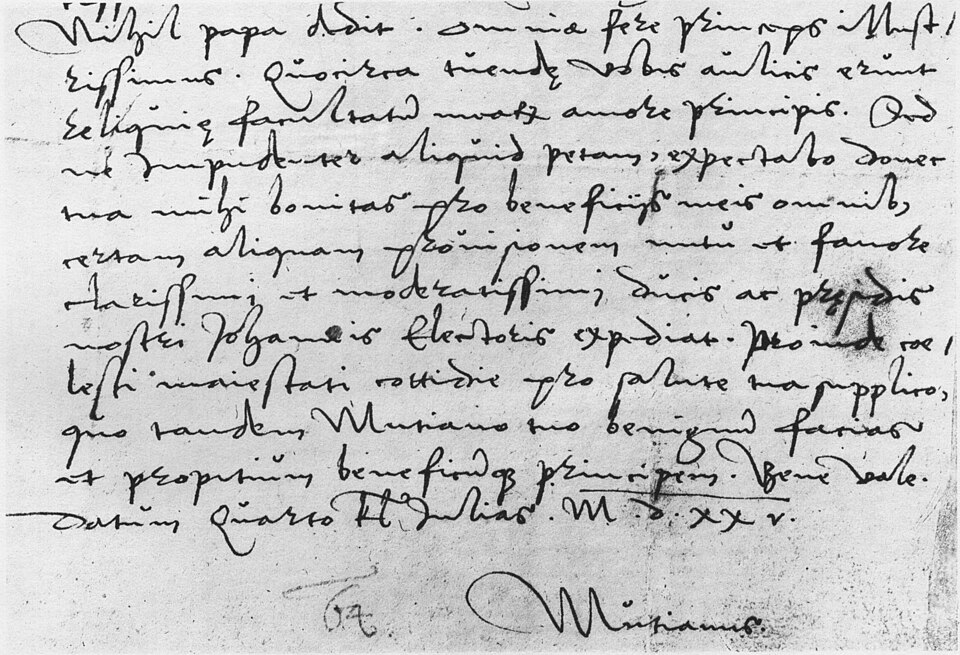 Nihil papa dedit. omnia fere princeps illust/
rissimus. Quocirca tuendę vobis aulicis erunt
reliquię facultatū mearꝝ amore principis. Qd
ne Impudenter aliquid petam, expectabo donec
tua mihi bonitas pro beneficijs meis omnib,
certam aliquam prouisionem nutu et fauore
clarissimi et moderatissimi ducis ac pręsidis
nostri Johannis Electoris expediat. Proinde coe/
lesti maiestati cottidie pro salute tua supplico,
quo tandem Mutiano tuo benignū facias
et propitium beneficūq principem. Bene vale.
Datum Quarto kl Iulias. M.d.xxv.
Mutianus.